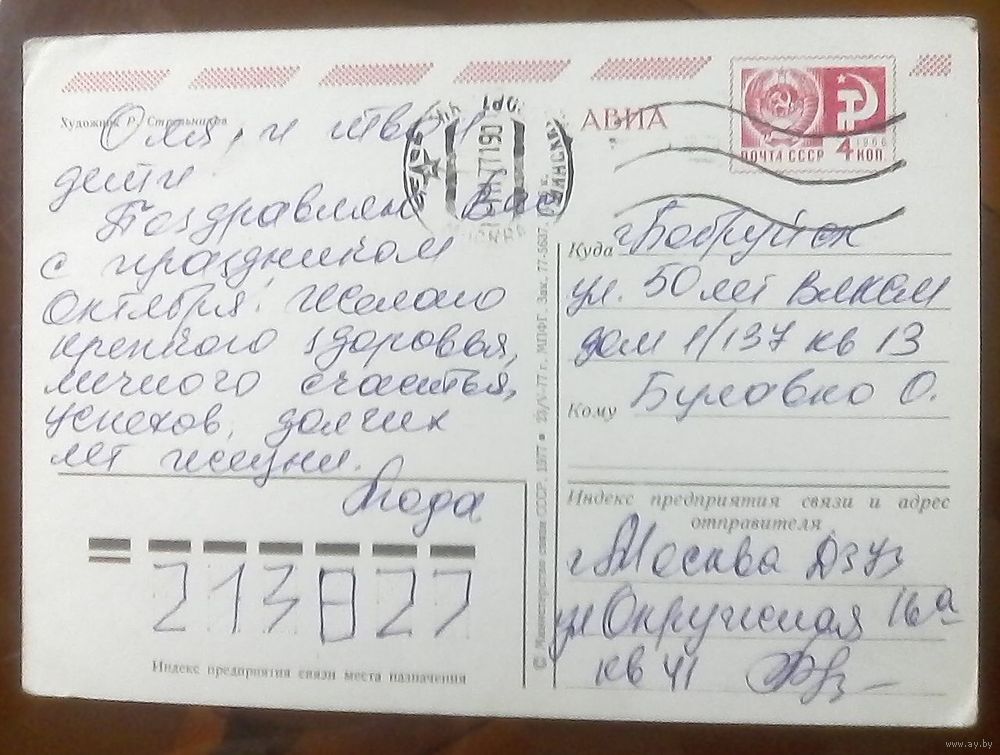 Художник Р. Стрельников
АВИА
1966
ПОЧТА СССР 4 КОП
Оля, и твои
дети
Поздравляю Вас
с праздником
Октября! Желаю
крепкого здоровья,
личного счастья,
успехов, долгих
лет жизни.
Куда г. Бобруйск
ул. 50 лет влксм
дом 1/137 кв 13
Кому Буловко О.
Индекс предприятия связи и адрес
отправителя
г. Москва
ул Окружная 16а
кв 41
213827
Индекс предприятия связи места назначения
© Министерство связи СССР, 1977 • 23/V-77 г. МПФГ. Зак. 77-5637.
www.ay.by